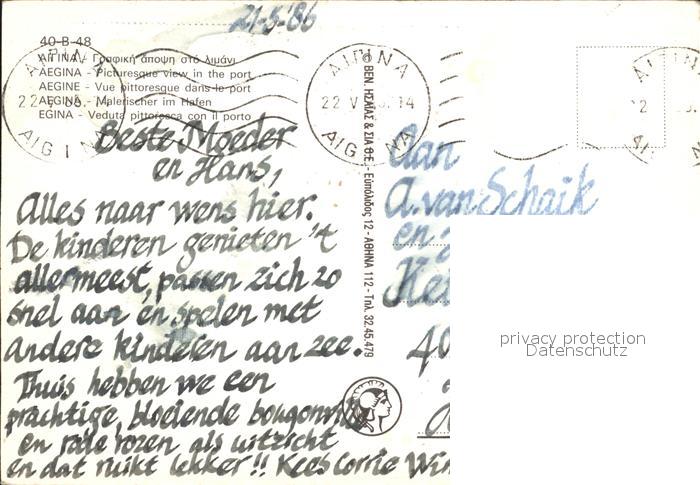 21-5-'86
40-B-48
ΑΙΓΙΝΑ - Γραφική άποψη στό λιμάνι
AEGINA - Picturesque view in the port
AEGINE - Vue pittoresque dans le port
AEGINA - Malerischer im Hafen
EGINA - Veduta pittoresca con il porto
ΑΙΓΙΝΑ
22 V 14
AIGINA
Beste Moeder
en Hans,
Alles naar wens hier.
De kinderen genieten 't
allermeest, passen zich zo
snel aan en spelen met
andere kinderen aan zee.
Thuis hebben we een
prachtige, bloeiende
en rode rozen als uitzicht
en dat ruikt lekker!! Kees Corrie
© ΒΕΝ. ΗΣΑΪΑΣ & ΣΙΑ Ο.Ε. - Ευπόλιδος 12 - ΑΘΗΝΑ 112 - Τηλ. 32.45.479
Aan
A. van Schaik
en
privacy protection
Datenschutz